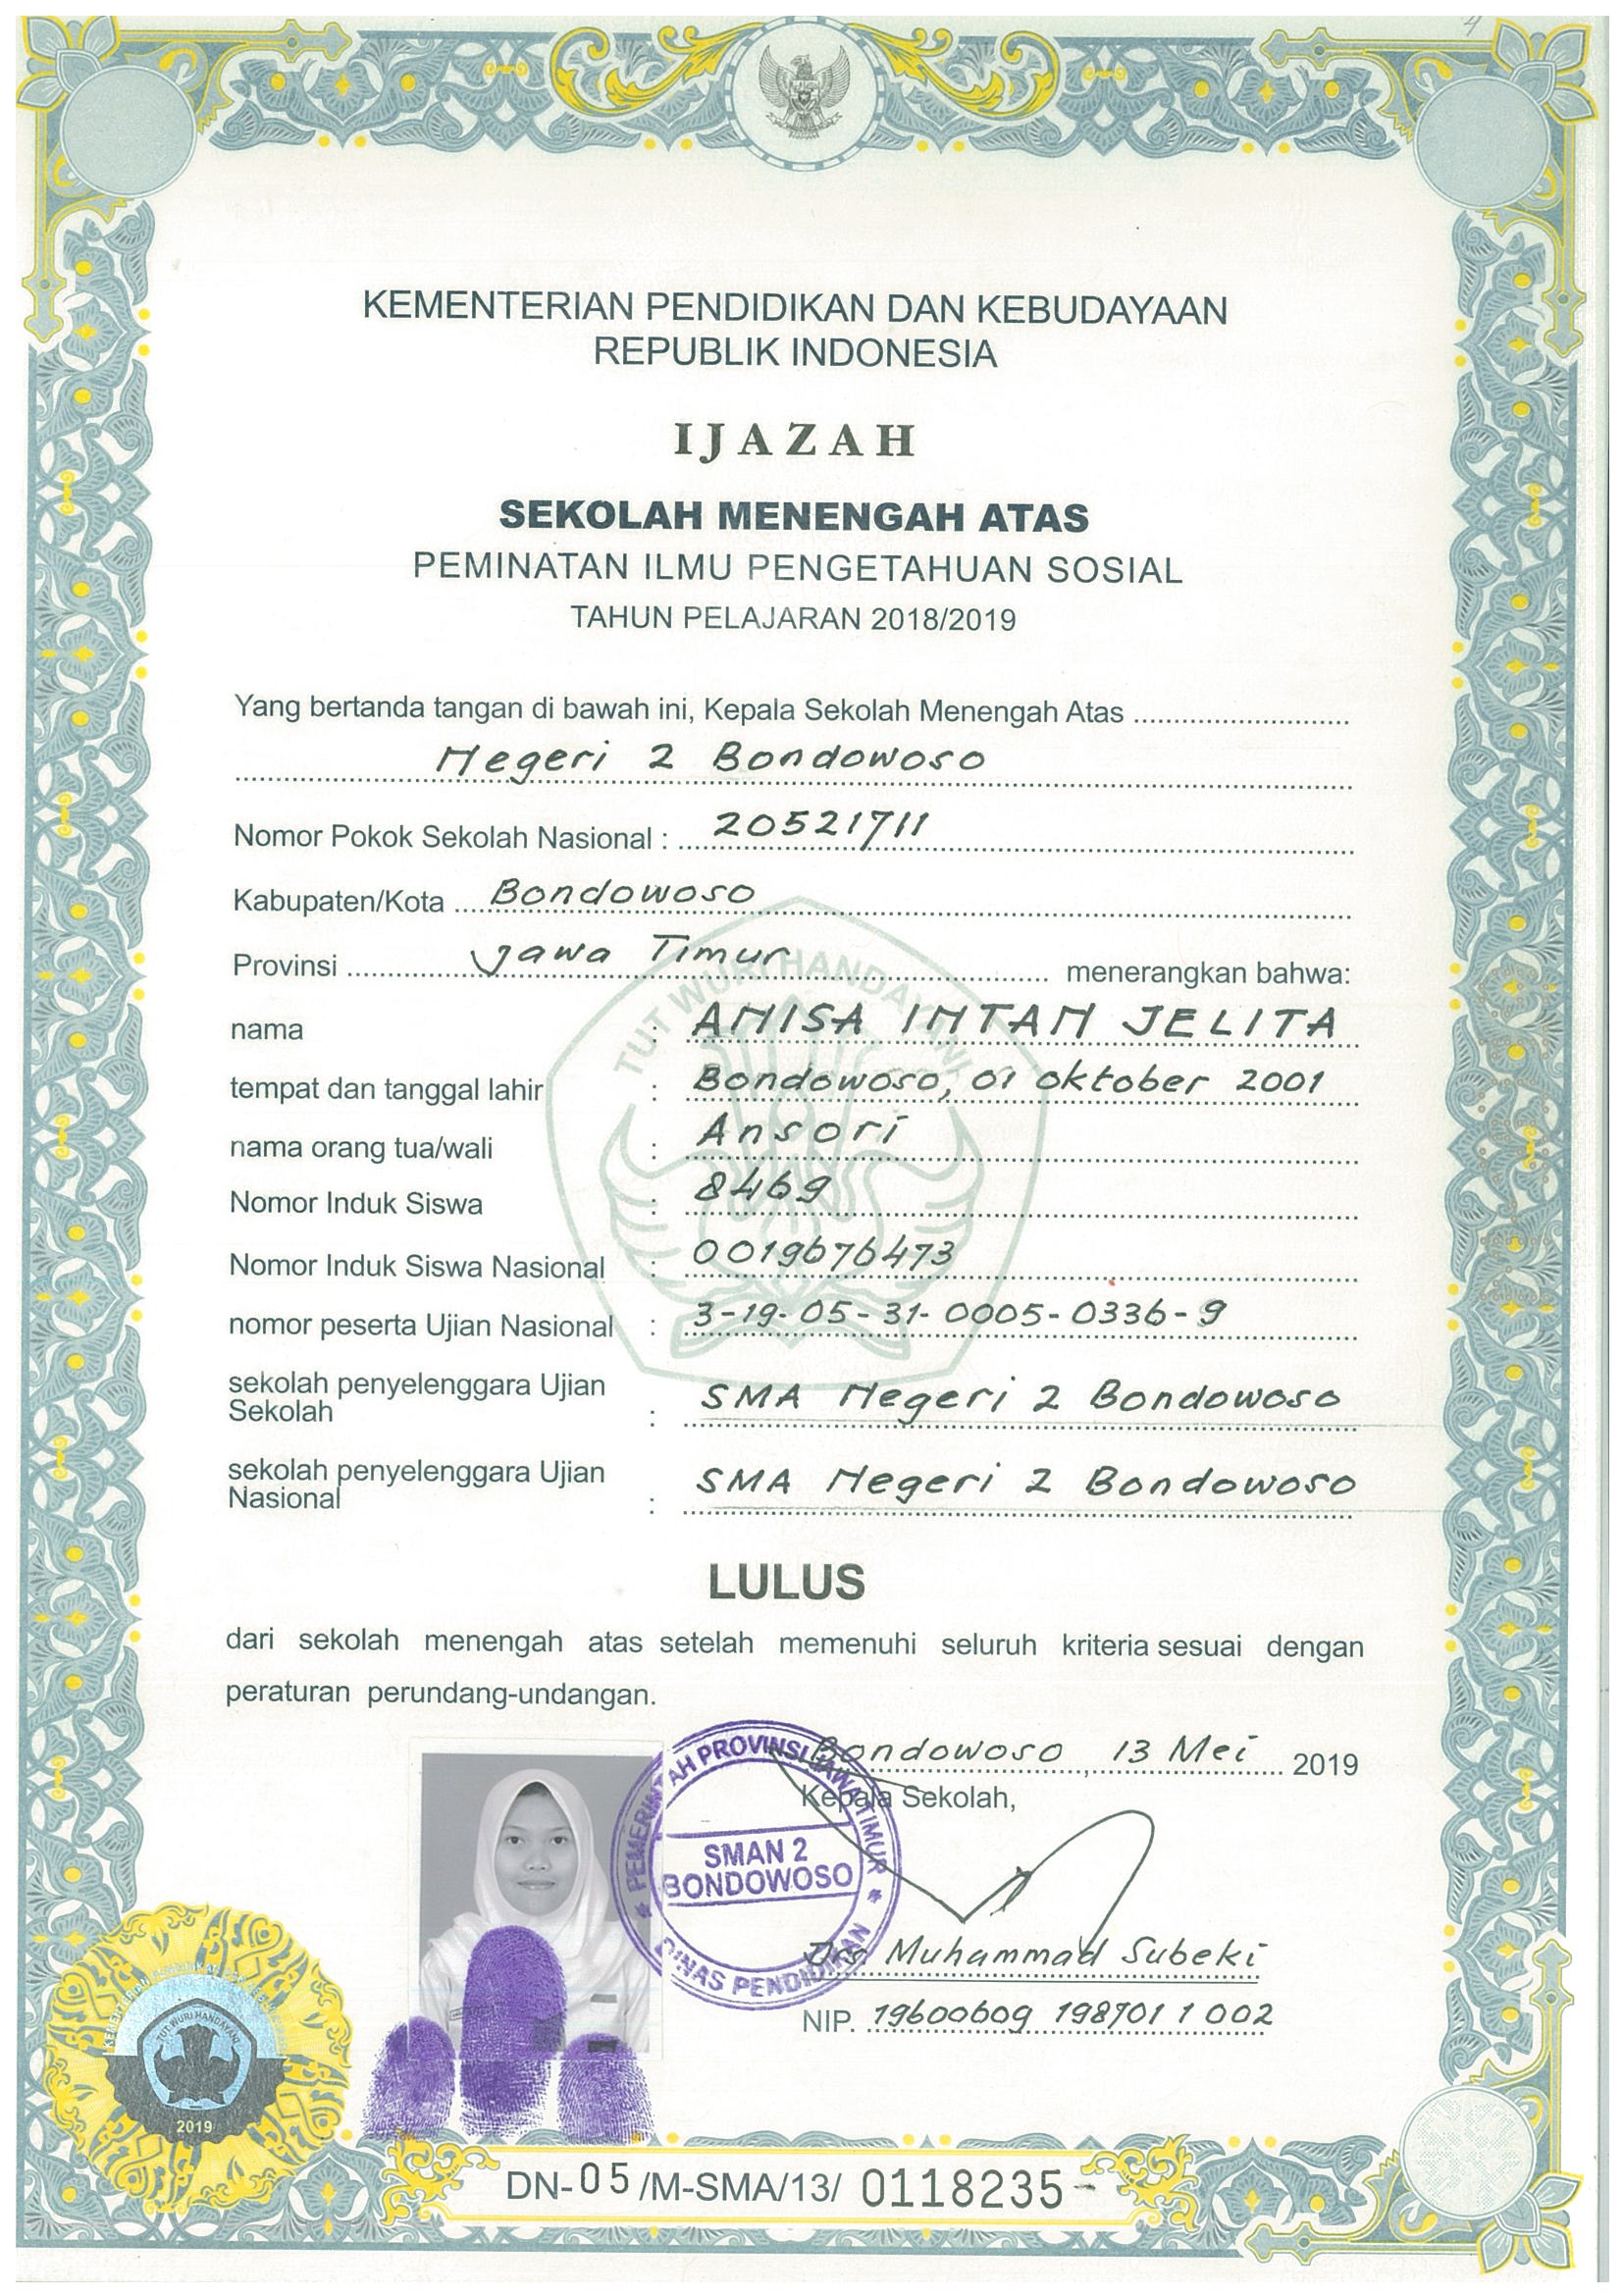 KEMENTERIAN PENDIDIKAN DAN KEBUDAYAAN
REPUBLIK INDONESIA
IJAZAH
SEKOLAH MENENGAH ATAS
PEMINATAN ILMU PENGETAHUAN SOSIAL
TAHUN PELAJARAN 2018/2019
Yang bertanda tangan di bawah ini, Kepala Sekolah Menengah Atas
Negeri 2 Bondowoso
Nomor Pokok Sekolah Nasional : 20521711
Kabupaten/Kota Bondowoso
Provinsi Jawa Timur menerangkan bahwa:
nama : ANISA INTAN JELITA
tempat dan tanggal lahir : Bondowoso, 01 Oktober 2001
nama orang tua/wali : Ansori
Nomor Induk Siswa : 8469
Nomor Induk Siswa Nasional : 0019676473
nomor peserta Ujian Nasional : 3-19-05-31-0005-0336-9
sekolah penyelenggara Ujian
Sekolah : SMA Negeri 2 Bondowoso
sekolah penyelenggara Ujian
Nasional : SMA Negeri 2 Bondowoso
LULUS
dari sekolah menengah atas setelah memenuhi seluruh kriteria sesuai dengan
peraturan perundang-undangan.
Bondowoso, 13 Mei 2019
Kepala Sekolah,
PEMERINTAH PROVINSI JAWA TIMUR
SMAN 2
BONDOWOSO
DINAS PENDIDIKAN
Drs Muhammad Subeki
NIP. 19600609 198701 1 002
TUT WURI HANDAYANI
TUT WURI HANDAYANI
2019
DN-05/M-SMA/13/ 0118235